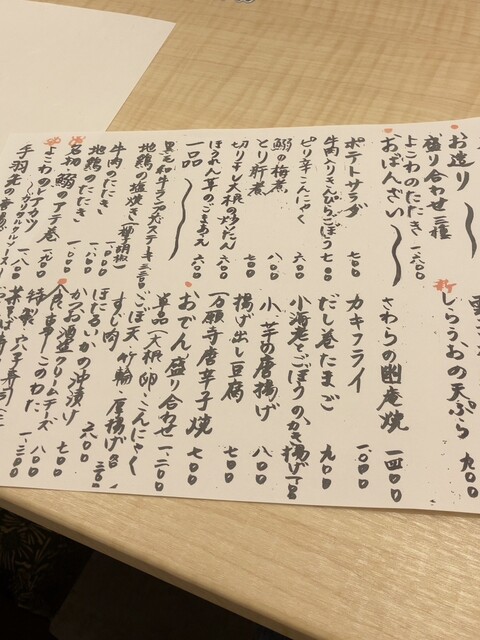 お造り
盛り合わせ三種
よこわのたたき 一、六〇〇
おばんざい
ポテトサラダ 五〇〇
牛肉入りきんぴらごぼう 七〇〇
ピリ辛こんにゃく 六〇〇
鰯の梅煮
とり肝煮 八〇〇
切り干し大根の炒たん 五〇〇
ほうれん草のごまあえ 六〇〇
一品
黒毛和牛ランプステーキ 三、二〇〇
地鶏の塩焼き（柚子胡椒）
牛肉のたたき
地鶏のたたき 一、八〇〇
名物 鰯のアテ巻 一、〇〇〇
よこわのレアカツ
手羽先の唐揚げ
新 しらうおの天ぷら 九〇〇
さわらの幽庵焼 一、四〇〇
カキフライ 一、〇〇〇
だし巻たまご 九〇〇
小海老とごぼうのかき揚げ
小芋の唐揚げ 八〇〇
揚げ出し豆腐 七〇〇
万願寺唐辛子焼 七〇〇
おでん盛り合わせ 一、二〇〇
単品（大根・卵・こんにゃく
ごぼ天 竹輪 厚揚げ 各三〇〇
すじ肉
ほたるいかの沖漬け 六〇〇
かな石酒盗クリームチーズ 七〇〇
このわた 八〇〇
特製 穴子寿司 一、三〇〇
茶そば寿司